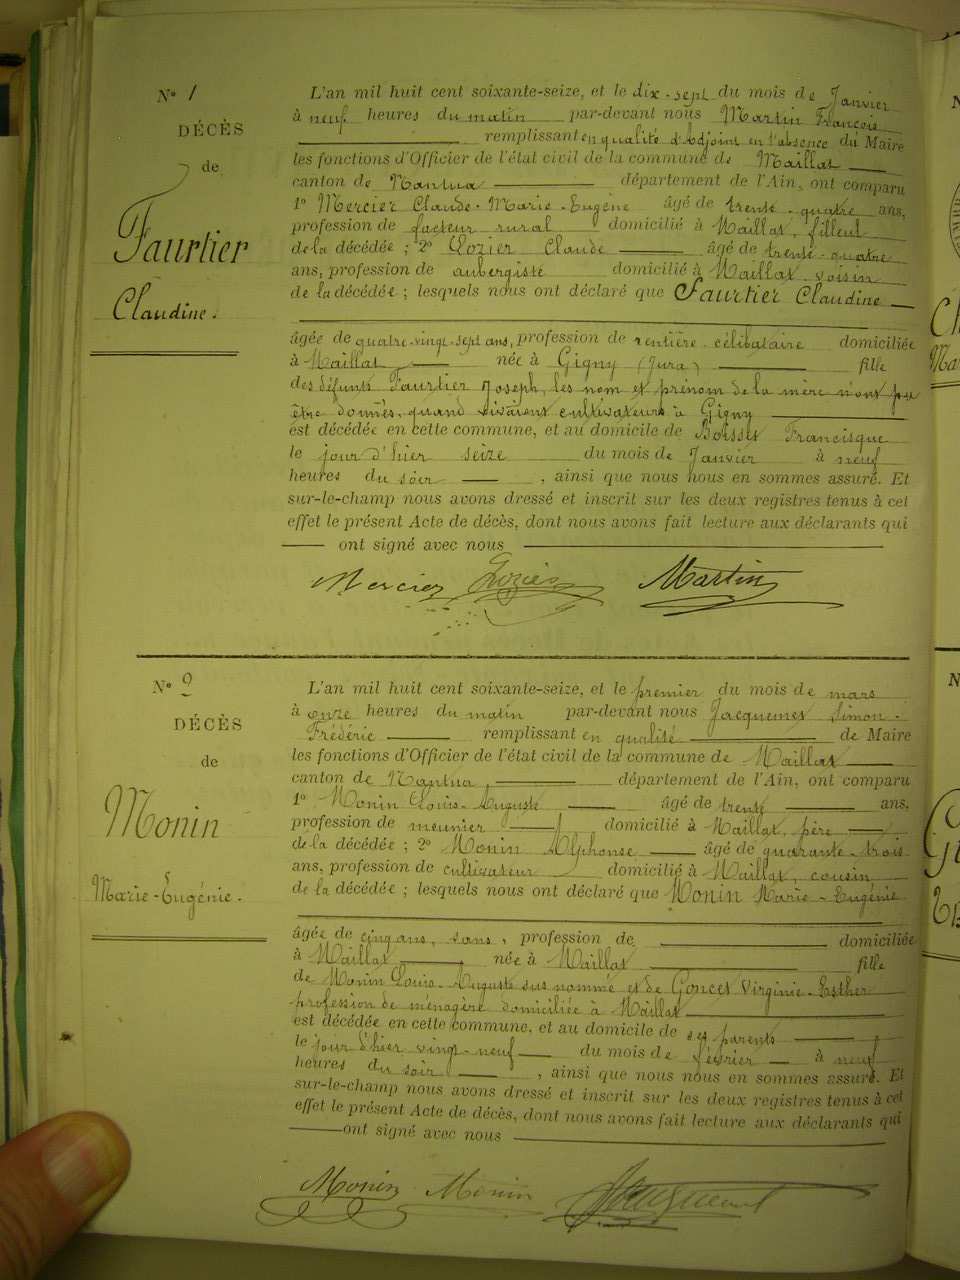 N° 1
DÉCÈS
de
Faurtier
Claudine.
L'an mil huit cent soixante-seize, et le dix-sept du mois de Janvier
à neuf heures du matin par-devant nous Martin François
remplissant en qualité d'Adjoint en l'absence du Maire
les fonctions d'Officier de l'état civil de la commune de Maillat
canton de Nantua département de l'Ain, ont comparu
1° Mercier Claude-Marie-Eugène âgé de trente-quatre ans,
profession de facteur rural domicilié à Maillat, filleul
de la décédée ; 2° Lozier Claude âgé de trente-quatre
ans, profession de aubergiste domicilié à Maillat, voisin
de la décédée ; lesquels nous ont déclaré que Faurtier Claudine
âgée de quatre-vingt-sept ans, profession de rentière célibataire domiciliée
à Maillat née à Gigny (Jura) fille
des défunts Faurtier Joseph, les nom et prénom de la mère n'ont pu
être donnés, quand vivaient cultivateurs à Gigny
est décédée en cette commune, et au domicile de Boisset Francisque
le jour d'hier seize du mois de Janvier à neuf
heures du soir , ainsi que nous nous en sommes assuré. Et
sur-le-champ nous avons dressé et inscrit sur les deux registres tenus à cet
effet le présent Acte de décès, dont nous avons fait lecture aux déclarants qui
ont signé avec nous
Mercier Lozier Martin
N° 2
DÉCÈS
de
Monin
Marie-Eugénie.
L'an mil huit cent soixante-seize, et le premier du mois de mars
à onze heures du matin par-devant nous Jacquemet Simon-
Frédéric remplissant en qualité de Maire
les fonctions d'Officier de l'état civil de la commune de Maillat
canton de Nantua, département de l'Ain, ont comparu
1° Monin Louis-Auguste âgé de trente ans,
profession de meunier domicilié à Maillat, père
de la décédée ; 2° Monin Alphonse âgé de quarante-trois
ans, profession de cultivateur domicilié à Maillat, cousin
de la décédée ; lesquels nous ont déclaré que Monin Marie-Eugénie
âgée de cinq ans, sans, profession de domiciliée
à Maillat née à Maillat fille
de Monin Louis-Auguste sus nommé et de Goncet Virginie-Esther
profession de ménagère domiciliée à Maillat
est décédée en cette commune, et au domicile de ses parents
le jour d'hier vingt-neuf du mois de février à neuf
heures du soir , ainsi que nous nous en sommes assuré. Et
sur-le-champ nous avons dressé et inscrit sur les deux registres tenus à cet
effet le présent Acte de décès, dont nous avons fait lecture aux déclarants qui
ont signé avec nous
Monin Monin Jacquemet